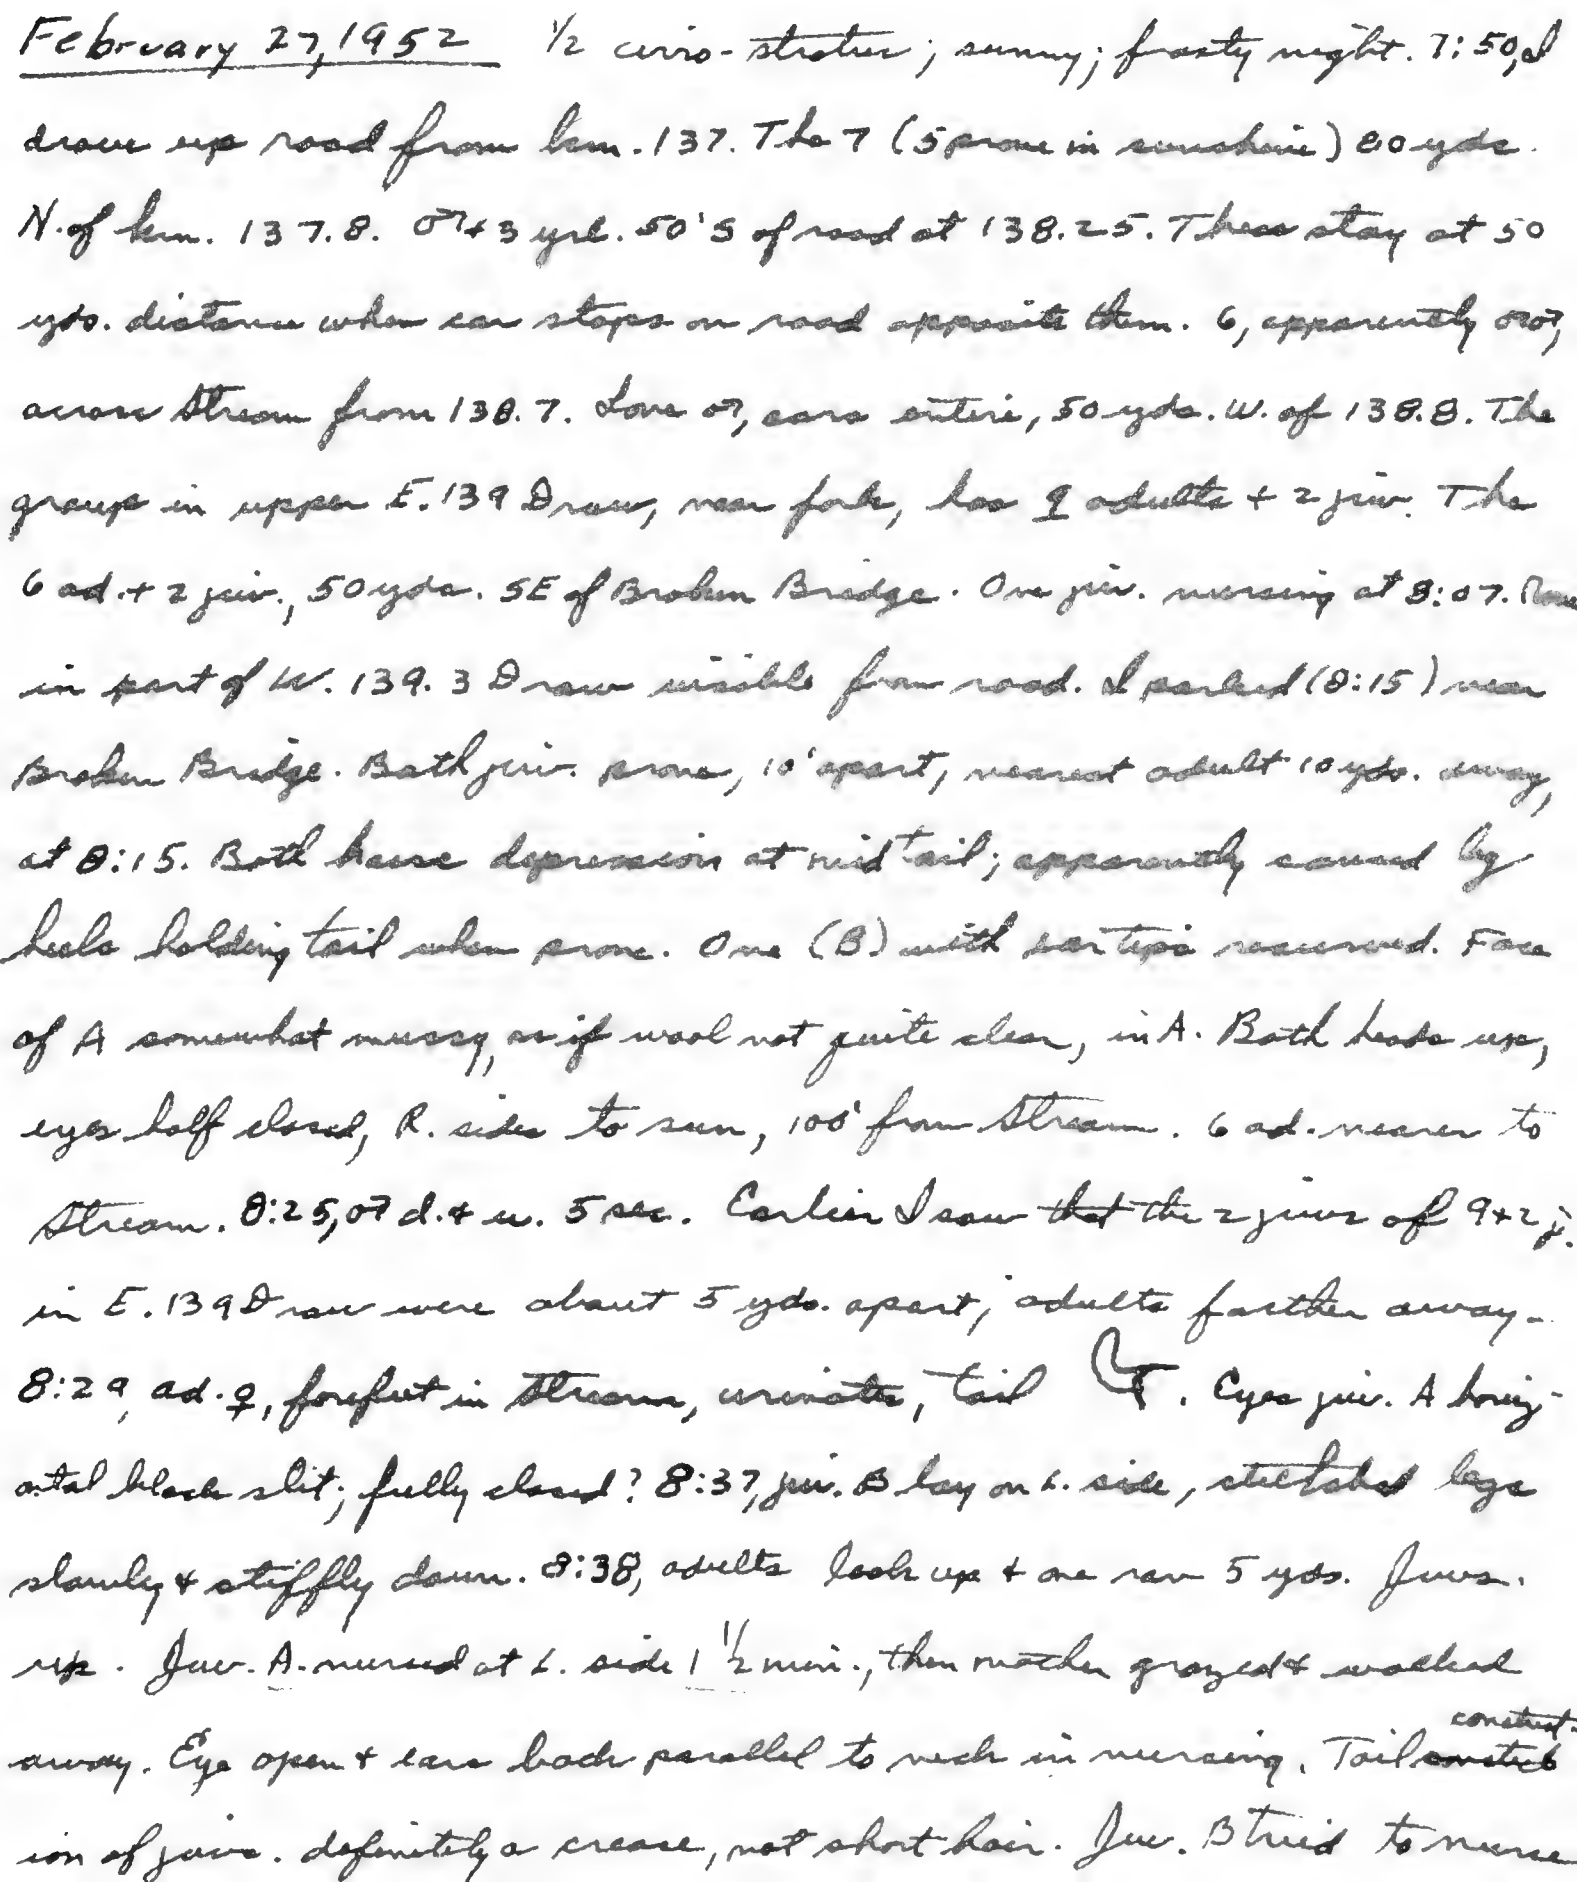 February 27, 1952 1/2 cirro-stratus; sunny; frosty night. 7:50, I
drove up road from km. 137. The 7 (5 prone in sunshine) 80 yds.
N. of km. 137.8. ♂ + 3 yrl. 50' S of road at 138.25. These stay at 50
yds. distance when car stops on road opposite them. 6, apparently ♂♂,
across stream from 138.7. Lone ♂, ears entire, 50 yds. W. of 138.8. The
group in upper E. 139 Draw, near fork, has 9 adults + 2 juv. The
6 ad. + 2 juv., 50 yds. SE of Broken Bridge. One juv. nursing at 8:07. None
in part of W. 139.3 Draw visible from road. I parked (8:15) near
Broken Bridge. Both juv. prone, 10' apart, nearest adult 10 yds. away,
at 8:15. Both have depression at mid tail; apparently caused by
heels holding tail when prone. One (B) with ear tips recurved. Face
of A somewhat mussy, as if wool not quite clean, in A. Both heads up,
eyes half closed, R. sides to sun, 100' from stream. 6 ad. nearer to
stream. 8:25, ♂ d. + u. 5 sec. Earlier I saw that the 2 juvs of 9 + 2 j.
in E. 139 Draw were about 5 yds. apart; adults farther away.
8:29, ad. ♀, forefeet in stream, urinates, tail . Eyes juv. A horiz-
ontal black slit; fully closed? 8:37, juv. B lay on L. side, stretched legs
slowly & stiffly down. 8:38, adults look up & one ran 5 yds. Juvs.
up. Juv. A. nursed at L. side 1 1/2 min., then mother grazed & walked
away. Eye open & ears back parallel to neck in nursing. Tail constrict-
ion of juvs. definitely a crease, not short hair. Juv. B tried to nurse